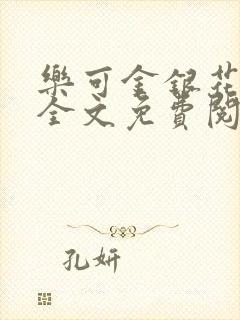 樂可金銀花
全文免費閱
孔妍